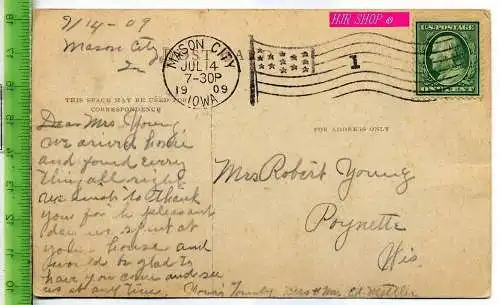 7/14-09
Mason City
Ia
MASON CITY
JUL 14
7-30P
1909
IOWA
1
HJR SHOP ©
U.S. POSTAGE
ONE CENT
THIS SPACE MAY BE USED FOR
CORRESPONDENCE
FOR ADDRESS ONLY
Dear Mrs Young
we arrived home
and found every
thing all right
we wish to thank
you for the pleasant
day we spent at
your house and
would be glad to
have you come and see
us at any time. Yours Truly, Mrs & Mr.
Mrs Robert Young
Poynette
Wis.